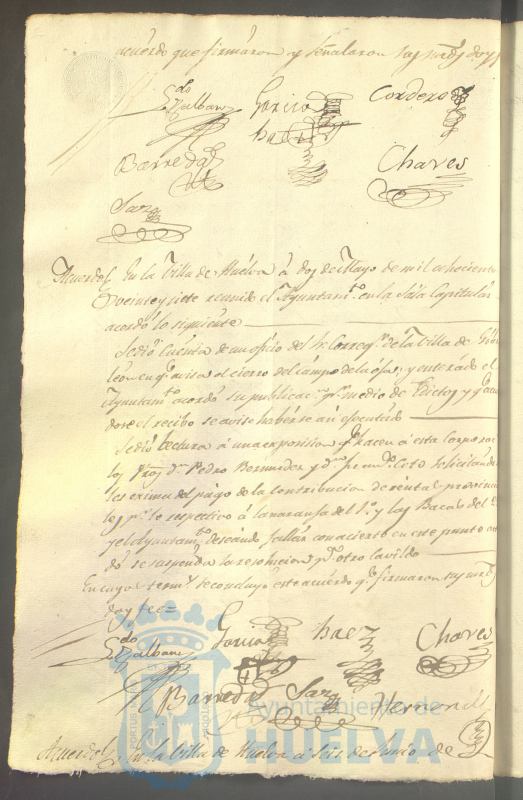 acuerdo que firmaron y señalaron sus mrds doy f
Ldo
Garcia
Cordero
Baez
Barreda
Chaves
Sanz
Acuerdo
En la Villa de Huelva á dos de Mayo de mil ochociento
veinte y siete reunido el Ayuntamto. en la Sala Capitular
acordó lo siguiente
Se dió Cuenta de un oficio del Sr. Correqr. de la Villa de Gibra
leon en q. avisa el cierro del campo de la y enterado el
Ayuntamto. acordó su publicacn. pr. medio de Edictos y q. acu
dose el recibo se avise haberse asi efectuado
Se dió lectura á una exposicion q. hacen á esta Corporacn
los Dn. Pedro Bermudez y Coto solicitando
les exima del pago de la contribucion de rentas provincia
les pr. lo respectivo á la naranja del y las Bacas del
y el Ayuntamto. deseando fallar con acierto en este punto acor
dó se suspenda la resolucion pa. otro cavildo
En cuyos termos. se concluyó este acuerdo q. firmaron sus mrds
doy fee=
Ldo
Garcia
Baez
Chaves
Barreda
Sanz
Hernand
Acuerdo
En la Villa de Huelva á seis de de
Ayuntamiento de
HUELVA
PORTUS